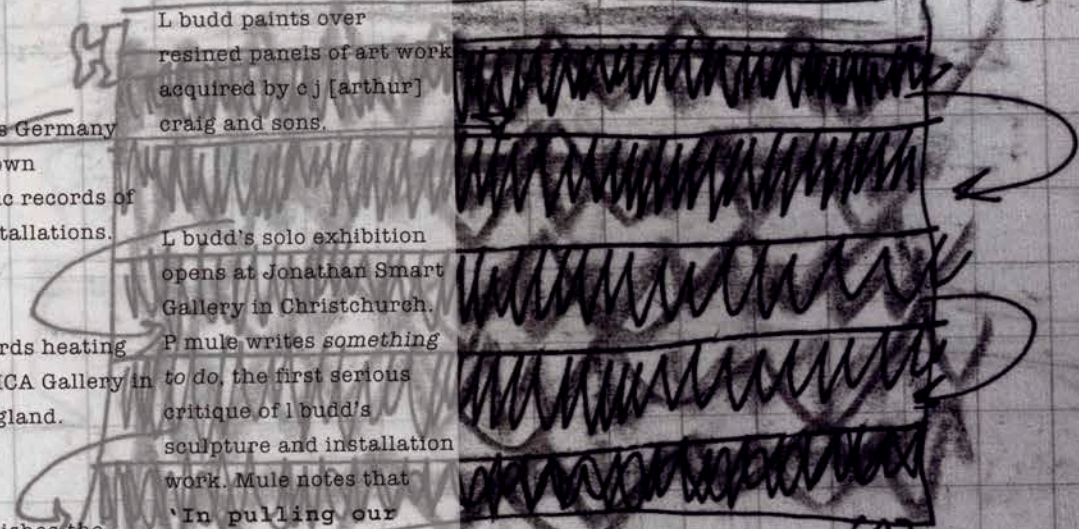 s Germany
own
ic records of
tallations.
rds heating
ICA Gallery in
gland.
ishes the
L budd paints over
resined panels of art work
acquired by c j [arthur]
craig and sons.
L budd's solo exhibition
opens at Jonathan Smart
Gallery in Christchurch.
P mule writes something
to do, the first serious
critique of l budd's
sculpture and installation
work. Mule notes that
'In pulling our